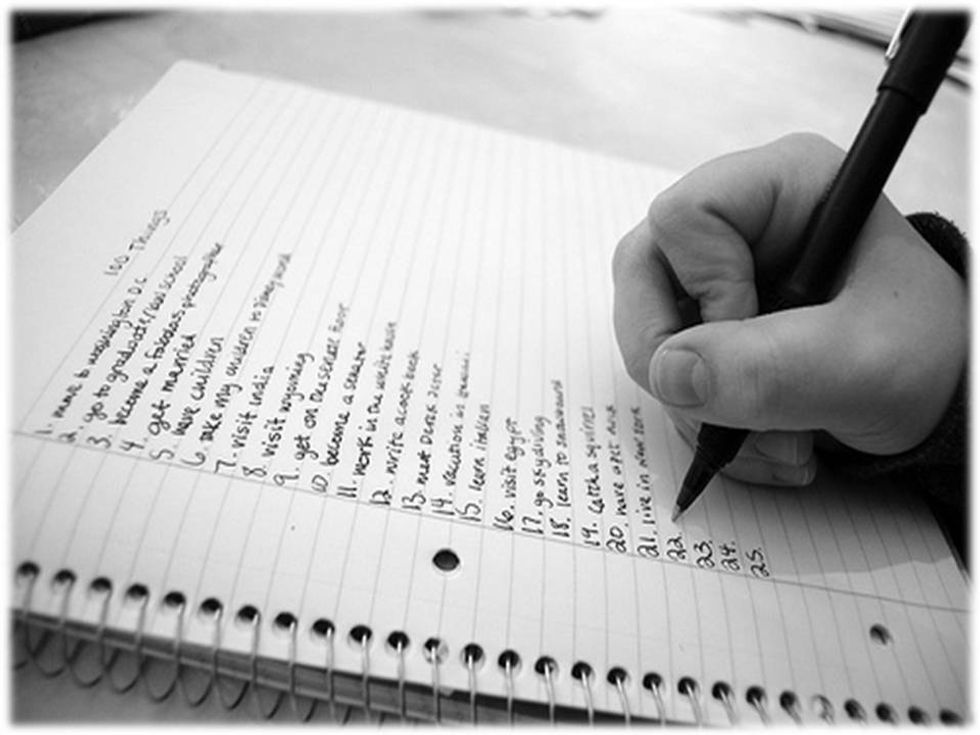 100 Things
1. move to washington D.C
2. go to graduate/law school
3. become a fabulous photographer
4. get married
5. have children
6. take my children to disney world
7. visit India
8. visit wyoming
9. get on the senate floor
10. become a senator
11. work in the white house
12. write a cook book
13. meet Derek Jeter
14. vacation in
15. learn italian
16. visit egypt
17. go skydiving
18. learn to
19. catch a squirrel
20. have
21. live in new york
22.
23.
24.
25.